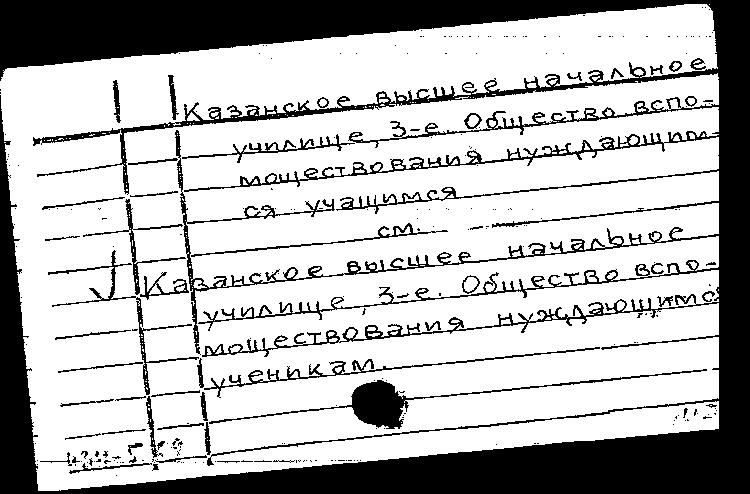 Казанское высшее начальное
училище, 3-е. Общество вспо-
моществования нуждающим-
ся учащимся
см.
Казанское высшее начальное
училище, 3-е. Общество вспо-
моществования нуждающимся
ученикам.